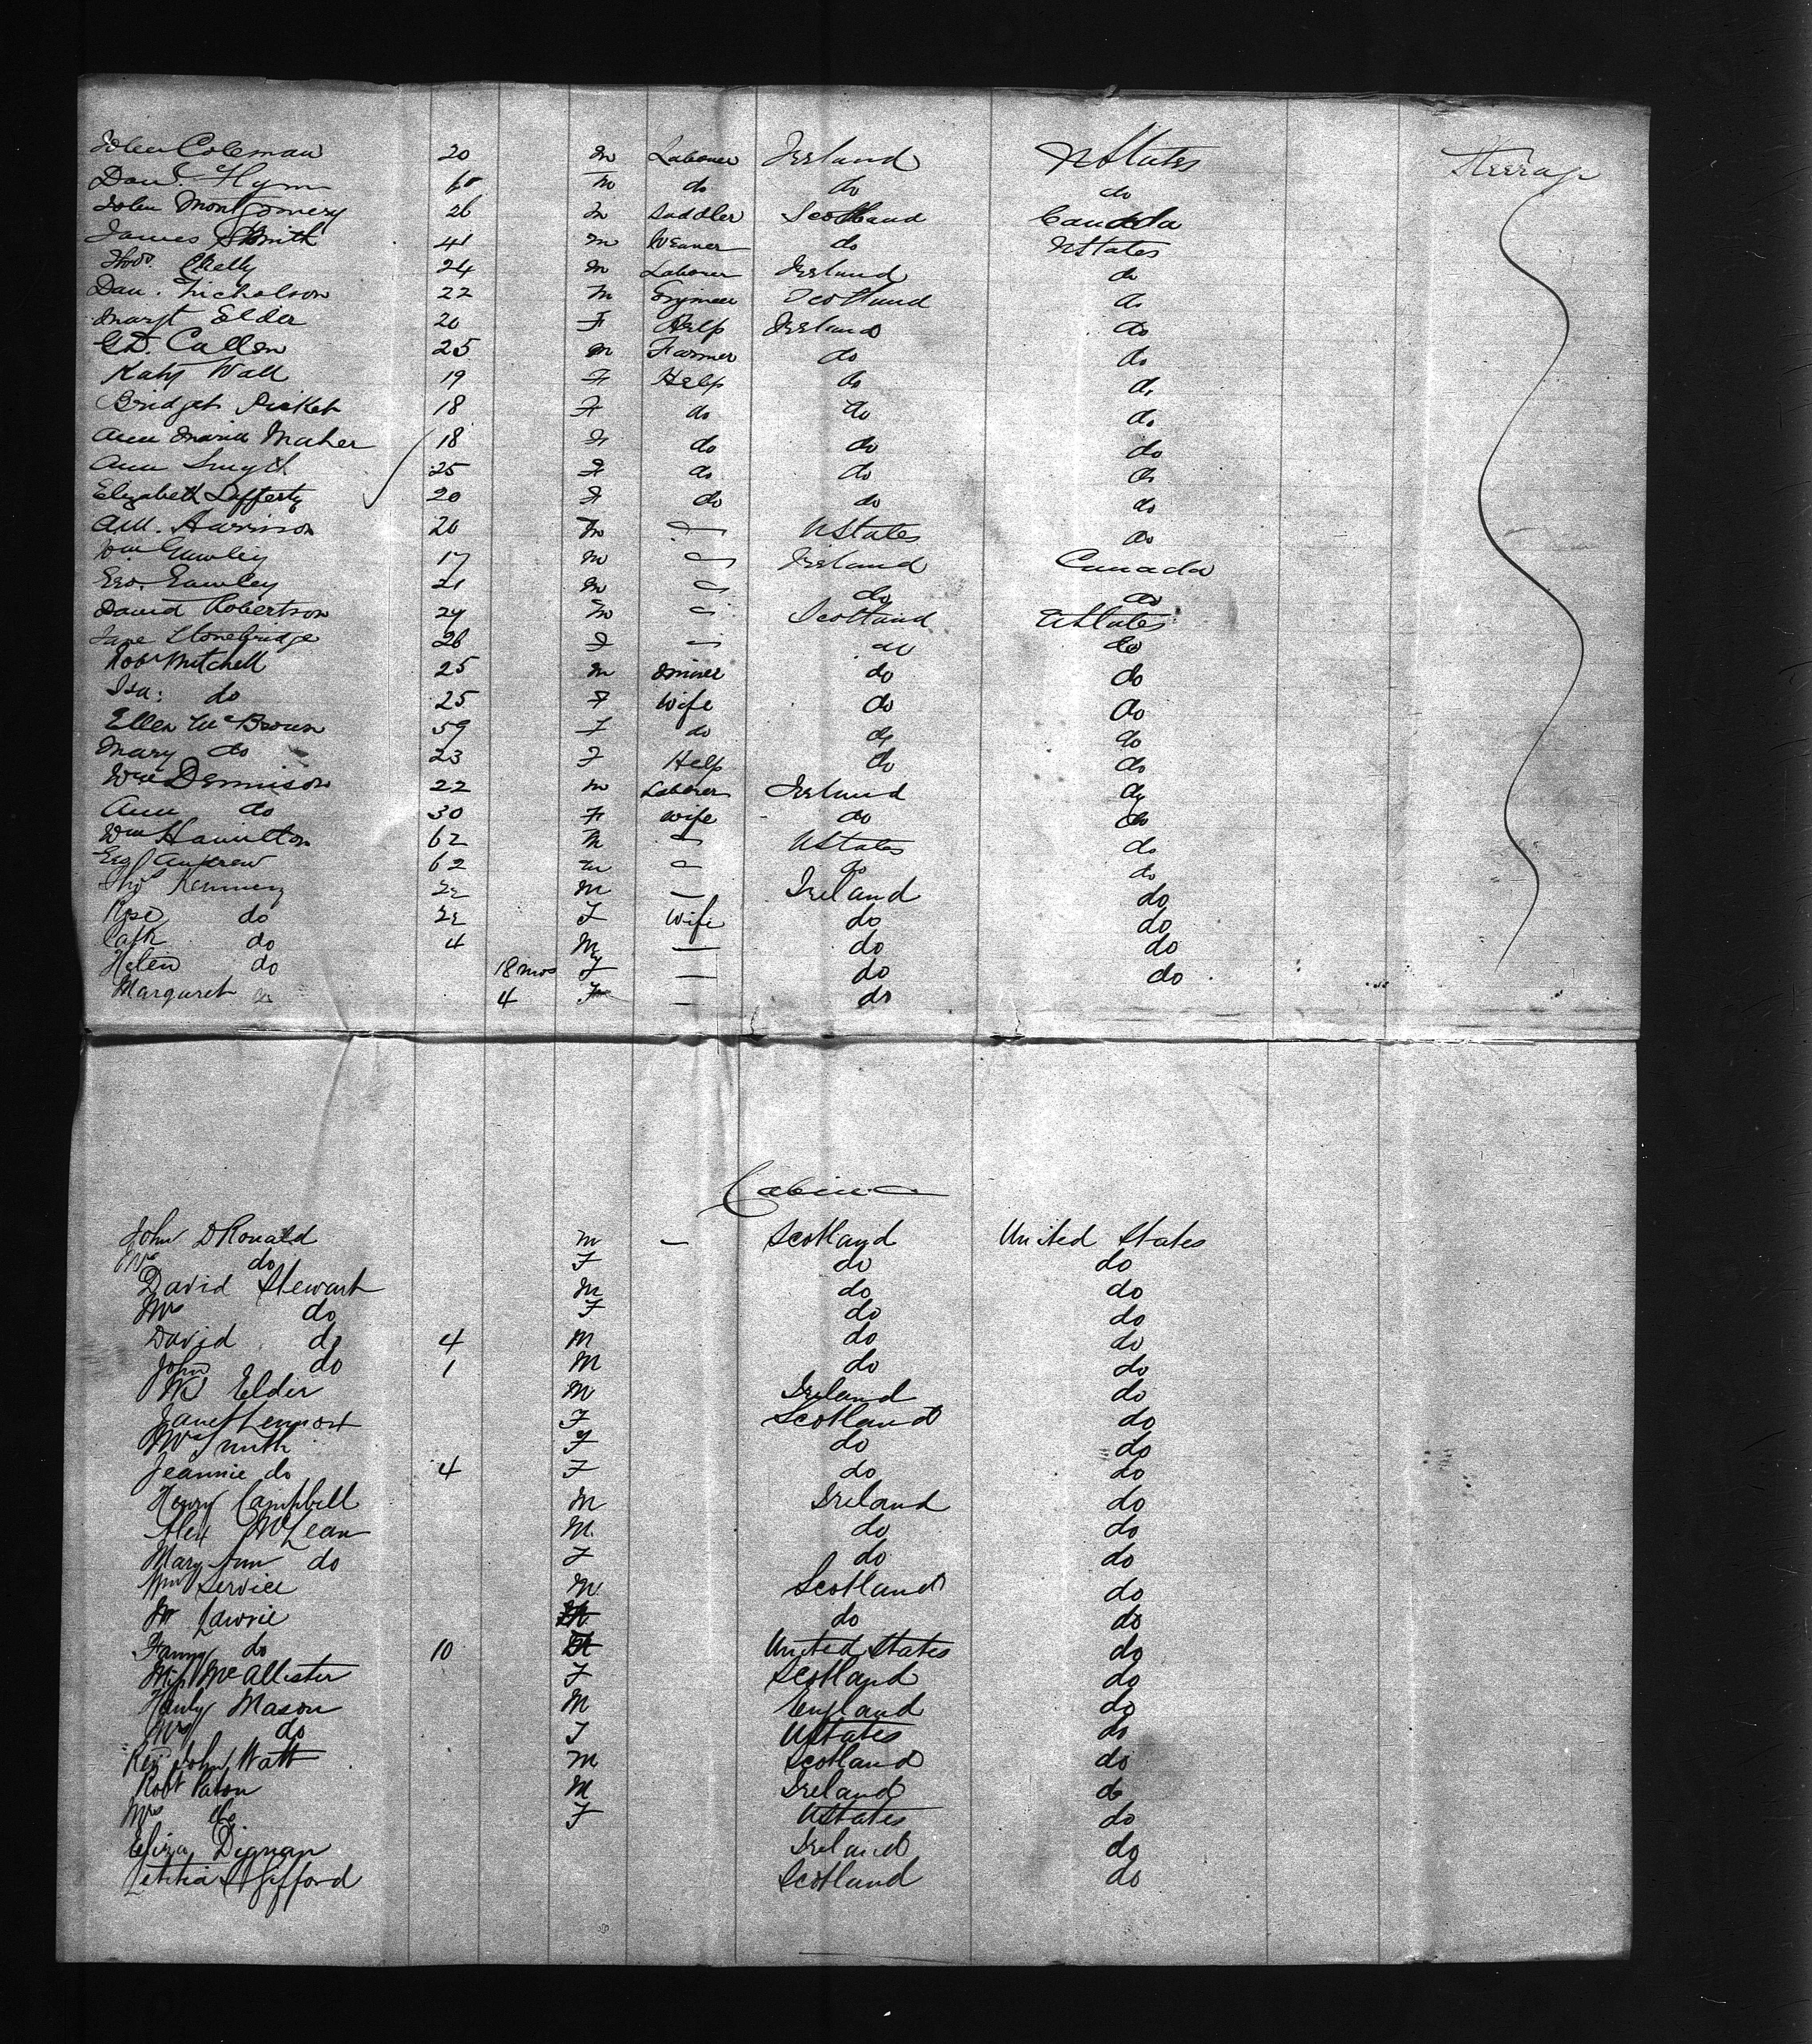 John Coleman 20 m Laborer Ireland UStates Steerage
Dan. Flynn 60 m do do do
John Montgomery 26 m Saddler Scotland Canada
James Smith 41 m Weaver do UStates
Thos. Kelly 24 m Laborer Ireland do
Dan. Nicholson 22 m Engineer Scotland do
Margt Elder 20 F Help Ireland do
Cullen 25 m Farmer do do
Katy Wall 19 F Help do do
Bridget Picket 18 F do do do
Ann Maria Maher 18 F do do do
Ann Smyth 25 F do do do
Elizabeth Lafferty 20 F do do do
Harrison 20 m — UStates do
Wm Gawley 17 m — Ireland Canada
Geo. Gawley 21 m — do do
David Robertson 24 m — Scotland UStates
Jane Stonebridge 26 F — do do
Robt Mitchell 25 m Miner do do
Isa: do 25 F Wife do do
Ellen McBroun 59 F do do do
Mary do 23 F Help do do
Wm Dennison 22 m Laborer Ireland do
Ann do 30 F Wife do do
Wm Hamilton 62 M — UStates do
Andrew 62 m — do do
Thos Kenney 22 M — Ireland do
Rose do 22 F Wife do do
do 4 M — do do
Helen do 18 mos F — do do
Margaret do 4 F — do
Cabin
John D Ronald m — Scotland United States
Mrs do F do do
David Stewart M do do
Mrs do F do do
David do 4 M do do
John do 1 M do do
Elder M Ireland do
Janet Lennox F Scotland do
Mrs Smith F do do
Jeannie do 4 F do do
Henry Campbell M Ireland do
Alex McLean M. do do
Mary Ann do F do do
Wm Service M Scotland do
Lawrie do do
Fanny do 10 United States do
Miss McAllister F Scotland do
Mason M England do
Mrs do F UStates do
Rev John Watt M Scotland do
Robt Paton M Ireland do
Mrs do F UStates do
Eliza Dignan Ireland do
Letitia Gifford Scotland do